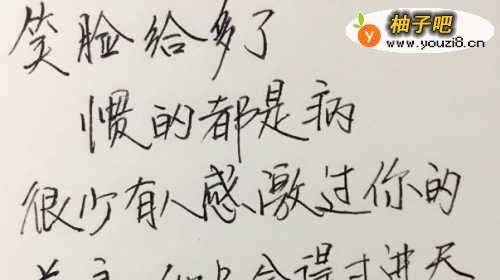 柚子吧
www.youzi8.cn
笑脸给多了
惯的都是病
很少有人感激过你的
会得寸进尺